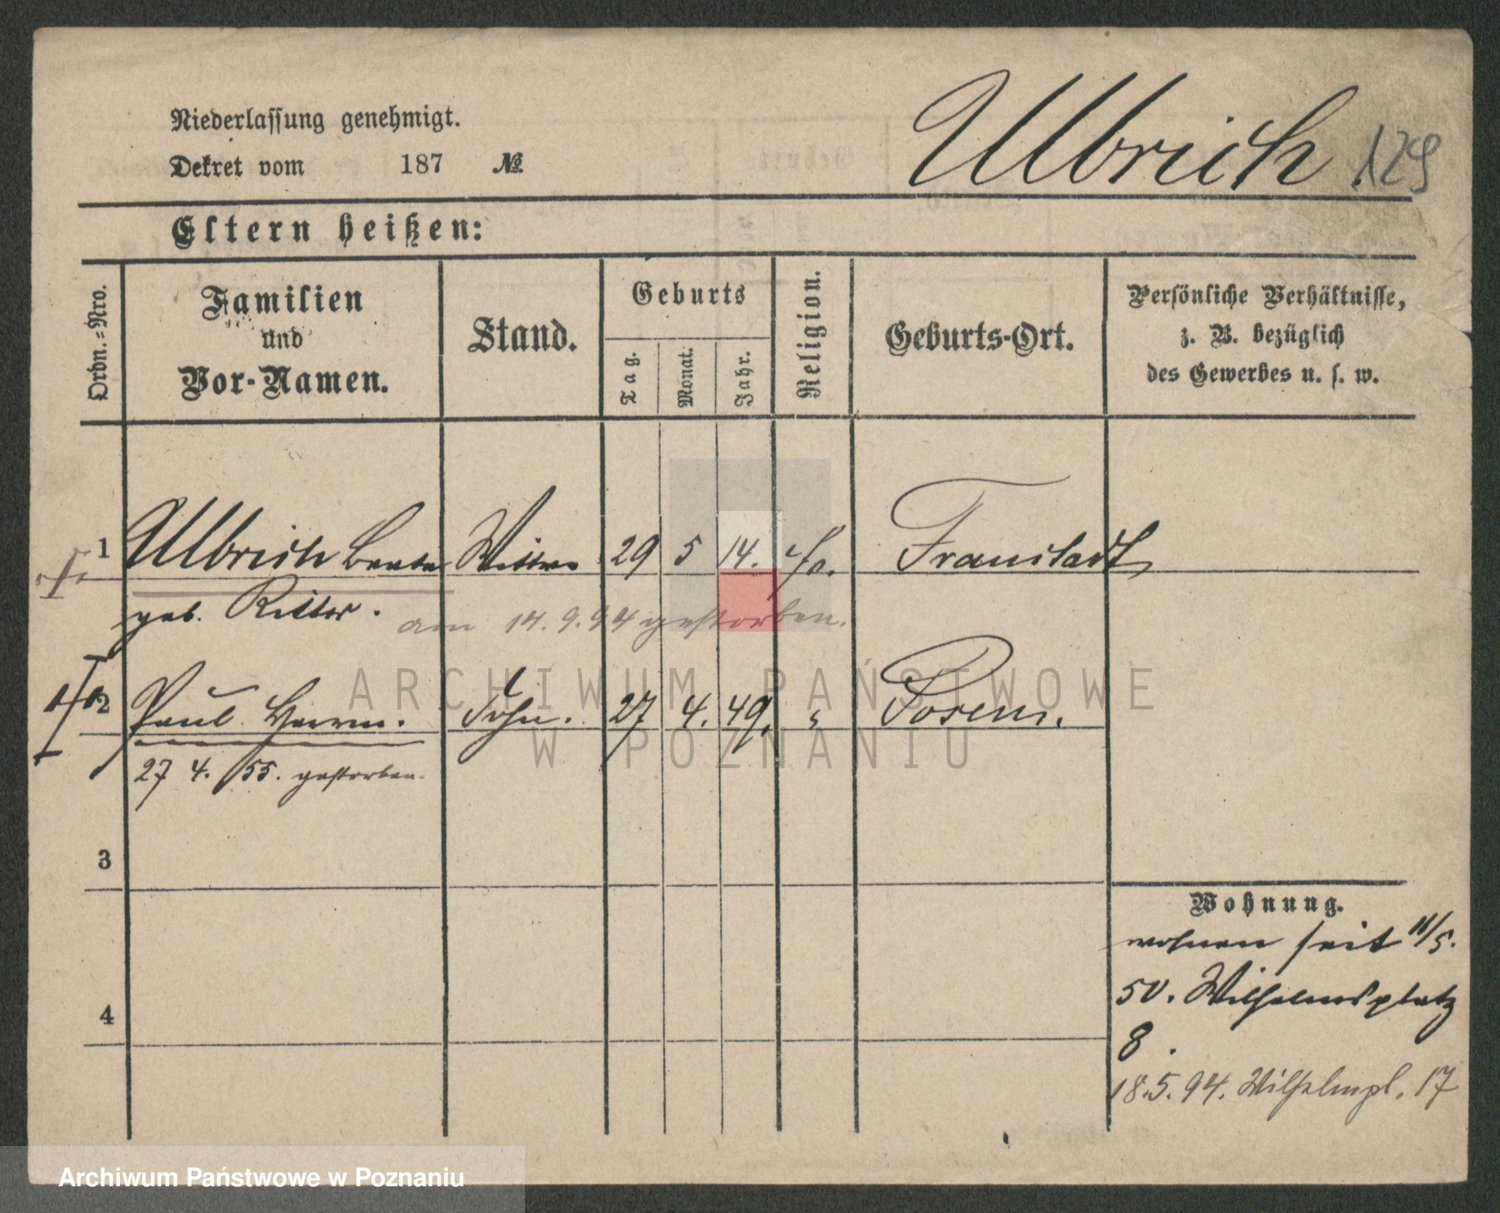 Niederlassung genehmigt.
Dekret vom 187 №
Ulbrich 129
Eltern heißen:
Ordn.=Nro.
Familien
und
Vor-Namen.
Stand.
Geburts
Tag.
Monat.
Jahr.
Religion.
Geburts-Ort.
Persönliche Verhältnisse,
z. B. bezüglich
des Gewerbes u. s. w.
1 Ulbrich Beate Wittwe 29 5 14. Fraustadt
geb. Ritter. am 14.9.94 gestorben.
2 Paul Herrm. Sohn. 27 4. 49. " Posen.
27 4. 55. gestorben.
3
4
Wohnung.
wohnen seit 11/5.
50. Wilhelmsplatz
8.
18.5.94. Wilhelmpl. 17
ARCHIWUM PAŃSTWOWE
W POZNANIU
Archiwum Państwowe w Poznaniu